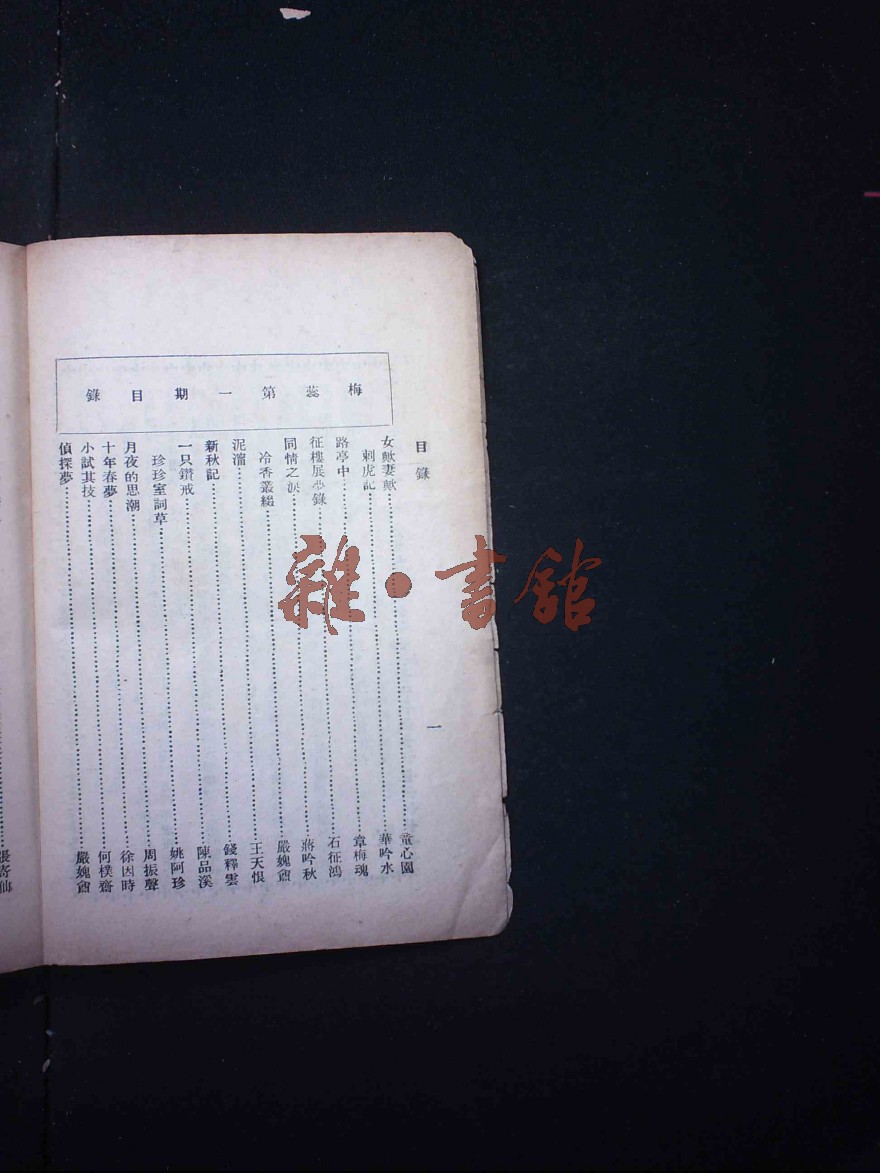 梅蕊第一期目錄
目錄
女歟妻歟……童心園
刺虎記……華吟水
路亭中……章梅魂
征樓展錄……石征鴻
同情之淚……蔣吟秋
冷香叢綴……嚴
泥……王天恨
新秋記……錢釋雲
一只鑽戒……陳品溪
珍珍室詞草……姚阿珍
月夜的思潮……周振聲
十年春夢……徐因時
小試其技……何樸齋
偵探夢……嚴
一
張寄仙
雜·書館